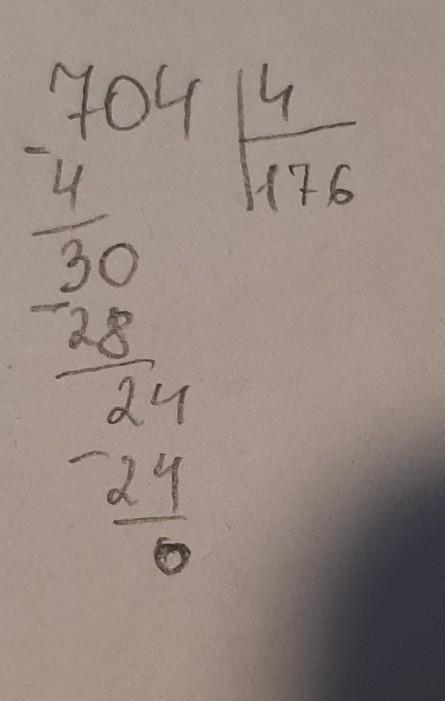 704 4
176
-
4
30
-
28
24
-
24
0